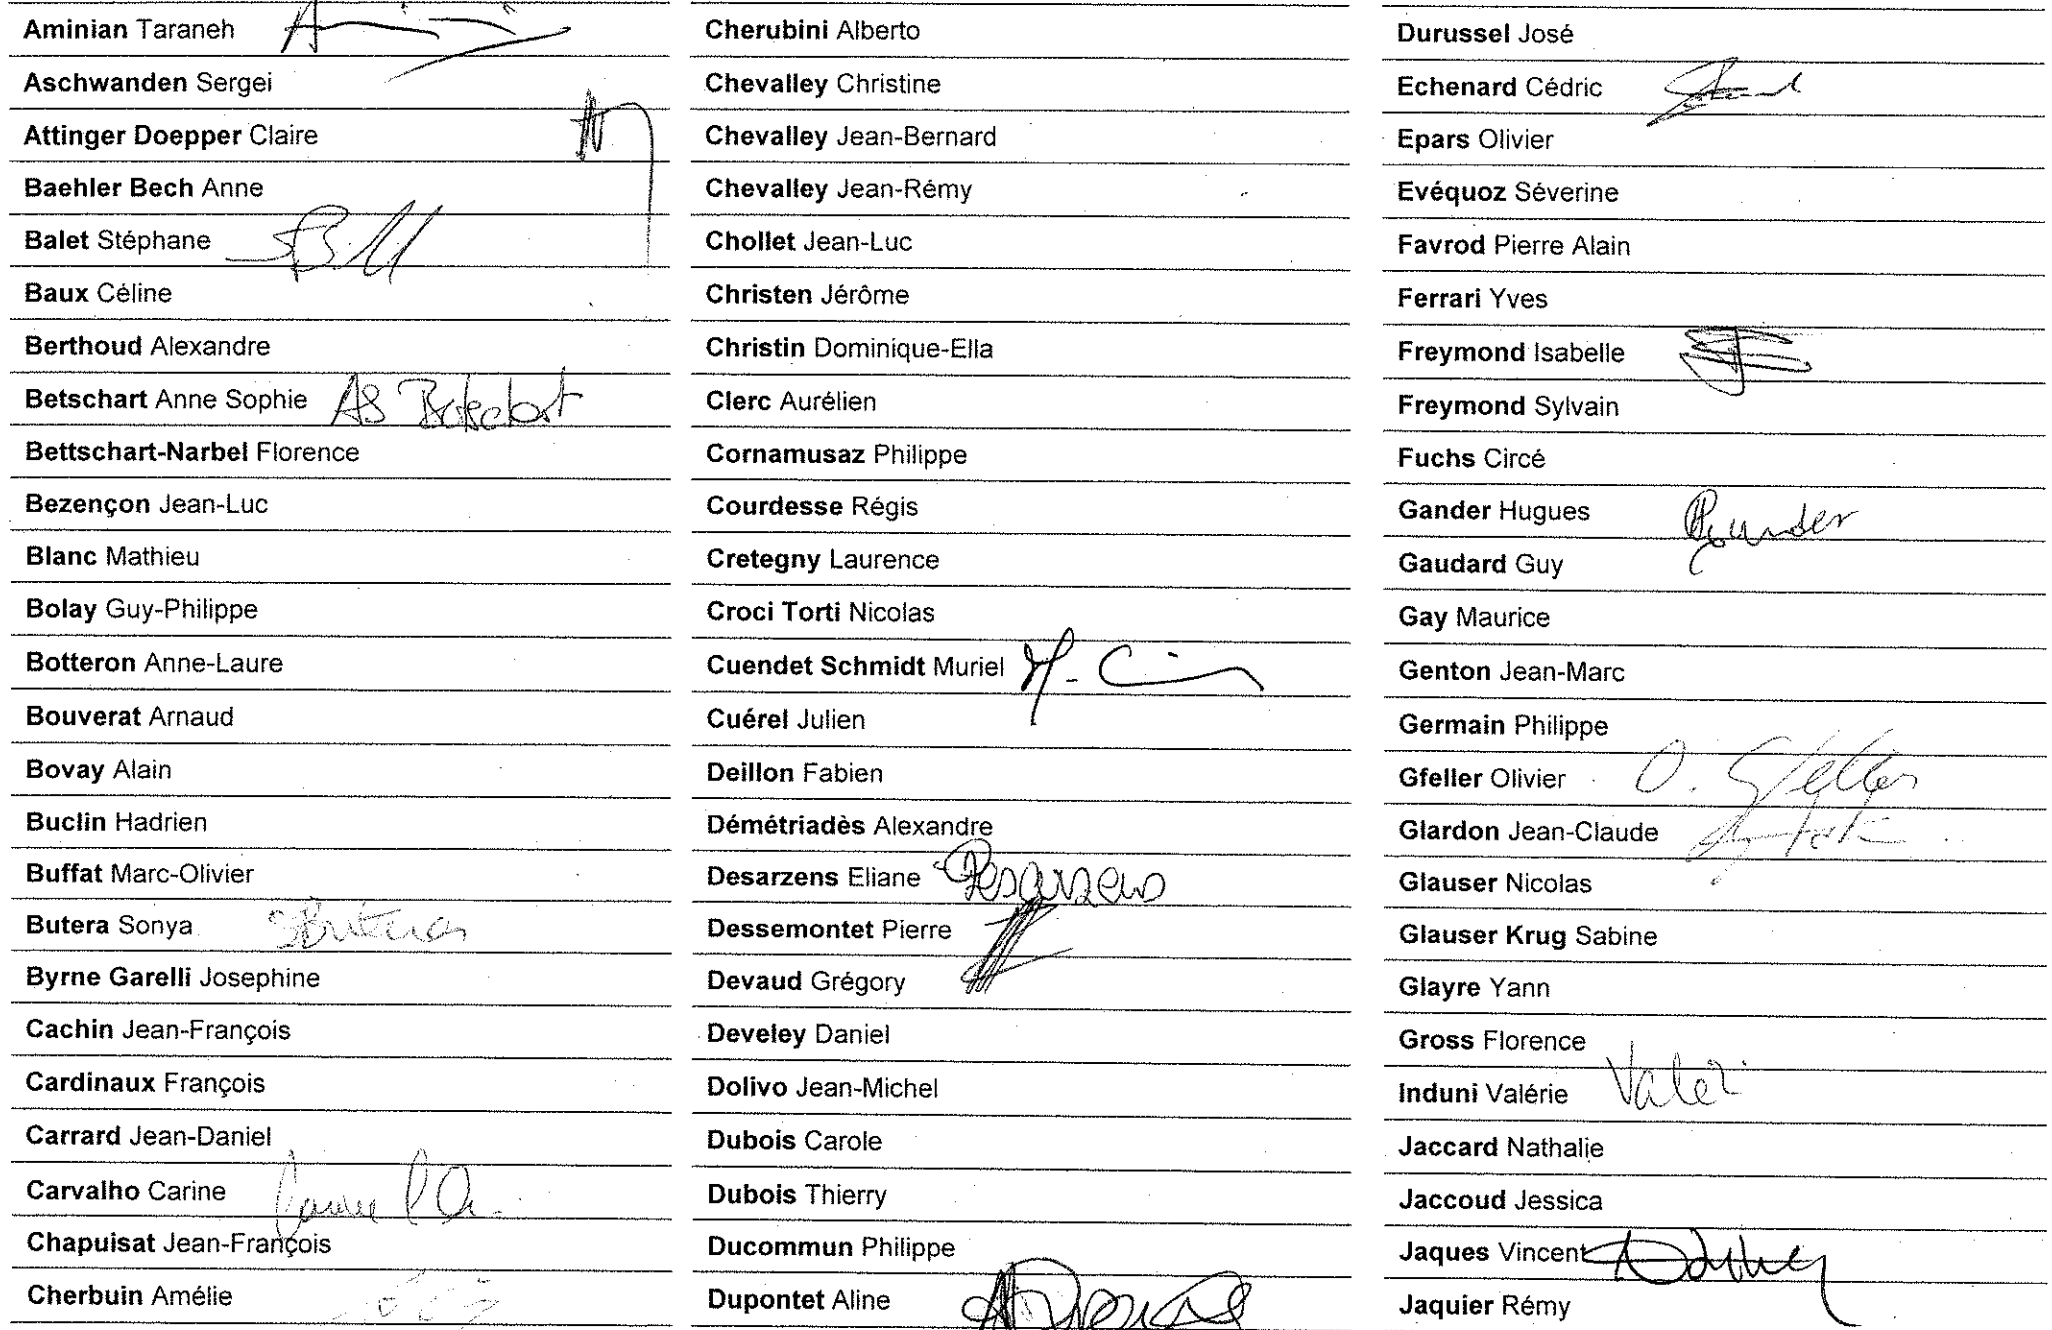 Aminian Taraneh
Aschwanden Sergei
Attinger Doepper Claire
Baehler Bech Anne
Balet Stéphane
Baux Céline
Berthoud Alexandre
Betschart Anne Sophie AS Betschart
Bettschart-Narbel Florence
Bezençon Jean-Luc
Blanc Mathieu
Bolay Guy-Philippe
Botteron Anne-Laure
Bouverat Arnaud
Bovay Alain
Buclin Hadrien
Buffat Marc-Olivier
Butera Sonya SButera
Byrne Garelli Josephine
Cachin Jean-François
Cardinaux François
Carrard Jean-Daniel
Carvalho Carine
Chapuisat Jean-François
Cherbuin Amélie
Cherubini Alberto
Chevalley Christine
Chevalley Jean-Bernard
Chevalley Jean-Rémy
Chollet Jean-Luc
Christen Jérôme
Christin Dominique-Ella
Clerc Aurélien
Cornamusaz Philippe
Courdesse Régis
Cretegny Laurence
Croci Torti Nicolas
Cuendet Schmidt Muriel
Cuérel Julien
Deillon Fabien
Démétriadès Alexandre
Desarzens Eliane Desarzens
Dessemontet Pierre
Devaud Grégory
Develey Daniel
Dolivo Jean-Michel
Dubois Carole
Dubois Thierry
Ducommun Philippe
Dupontet Aline
Durussel José
Echenard Cédric
Epars Olivier
Evéquoz Séverine
Favrod Pierre Alain
Ferrari Yves
Freymond Isabelle
Freymond Sylvain
Fuchs Circé
Gander Hugues Gander
Gaudard Guy
Gay Maurice
Genton Jean-Marc
Germain Philippe
Gfeller Olivier O. Gfeller
Glardon Jean-Claude
Glauser Nicolas
Glauser Krug Sabine
Glayre Yann
Gross Florence
Induni Valérie
Jaccard Nathalie
Jaccoud Jessica
Jaques Vincent
Jaquier Rémy